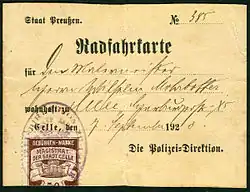 Staat Preußen. № 385
Radfahrkarte
für Den Malermeister
Herrn Wilhelm
wohnhaft zu Celle,
Celle, den 7. September 1920
Die Polizei-Direktion.
GEBÜHREN-MARKE
MAGISTRAT
DER STADT CELLE
50